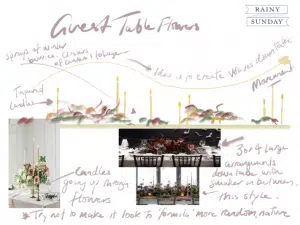 Guest Table Flowers
RAINY
SUNDAY
sprays of winter
berries,
of autumn foliage
Idea is to create waves down table
Movement
Tapered
Candles
3 or 4 Large
arrangements
down table with
smaller in between.
this style.
Candles
going up through
flowers
* Try not to make it look to 'formula' more random nature